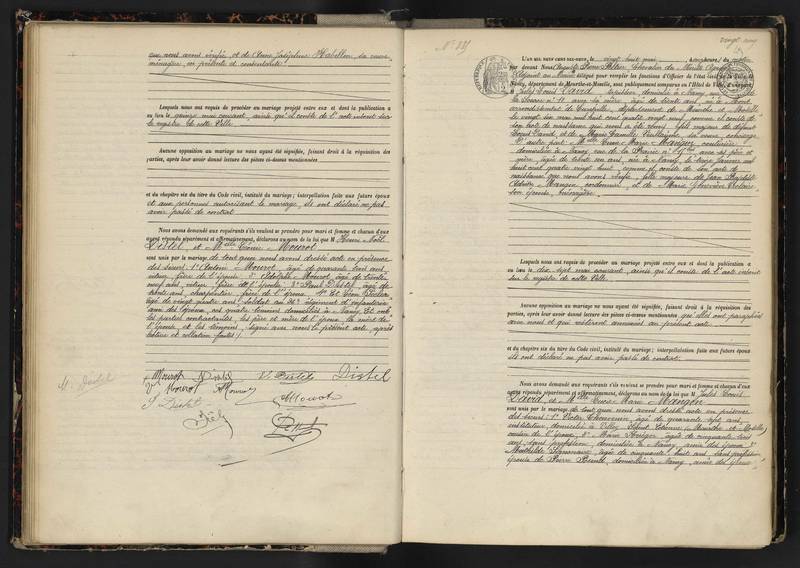 que nous avons vérifié, et de Anne Joséphine Habillon, sa veuve
ménagère, ici présente et consentante.
Lesquels nous ont requis de procéder au mariage projeté entre eux et dont la publication a
eu lieu le quinze mai courant, ainsi qu'il conste de l'acte inscrit sur
le registre de cette Ville.
Aucune opposition au mariage ne nous ayant été signifiée, faisant droit à la réquisition des
parties, après leur avoir donné lecture des pièces ci-dessus mentionnées
et du chapitre six du titre du Code civil, intitulé du mariage; interpellation faite aux futurs époux
et aux personnes autorisant le mariage, ils ont déclaré ne pas
avoir passé de contrat
Nous avons demandé aux requérants s'ils veulent se prendre pour mari et femme et chacun d'eux
ayant répondu séparément et affirmativement, déclarons au nom de la loi que M Henri Noël
Distel et Melle Mourot
sont unis par le mariage de tout quoi nous avons dressé acte en présence
des sieurs: 1° Mourot, âgé de quarante trois ans
frère de l'épouse, 2° Adolphe Mourot, âgé de trente
neuf ans, frère de l'épouse, 3° Paul Distel, âgé de
trente ans, charpentier, frère de l'époux 4° Et Léon
âgé de vingt quatre ans, soldat au 26e régiment d'infanterie
ami des époux, ces quatre témoins domiciliés à Nancy. Et ont
les parties contractantes, les père et mère de l'époux, la mère de
l'épouse et les témoins, signé avec nous le présent acte, après
lecture et collation faites.
Mourot Distel V. Distel Distel
Vve Mourot AMourot
Distel AMourot
Noël
Distel
N° 337
vingt cinq
L'AN MIL NEUF CENT DIX-NEUF, le vingt huit mai, à
par devant Nous Pierre Peltier Chevalier du Mérite Agricole
Adjoint au Maire délégué pour remplir les fonctions d'Officier de l'état civil de la Ville de
Nancy, département de Meurthe-et-Moselle, sont publiquement comparus en l'Hôtel de Ville, d'une part
M Jules Louis David, domicilié à Nancy, rue de
n° 11 avec sa mère, âgé de trente ans, né à Mont
arrondissement de Lunéville, département de Meurthe et Moselle,
le vingt six mai mil huit cent quatre vingt neuf, comme il conste de
son acte de naissance qui nous a été remis, fils majeur de défunt
Louis David, et de Marie Guillaume, sa veuve,
D'autre part Melle Rose Marie Mangin couturière
domiciliée à Nancy, rue de la avec ses père et
mère, âgée de trente un ans, née à Nancy, le treize janvier mil
huit cent quatre vingt huit, comme il conste de son acte de
naissance que nous avons vérifié, fille majeure de Jean Baptiste
Mangin cordonnier, et de Marie Geneviève
son épouse, ménagère.
Lesquels nous ont requis de procéder au mariage projeté entre eux et dont la publication a
eu lieu le dix sept mai courant, ainsi qu'il conste de l'acte inscrit
sur le registre de cette Ville.
Aucune opposition au mariage ne nous ayant été signifiée, faisant droit à la réquisition des
parties, après leur avoir donné lecture des pièces ci-dessus mentionnées qu'elles ont paraphées
avec nous et qui resteront annexées au présent acte
et du chapitre six du titre du Code civil, intitulé du mariage; interpellation faite aux futurs époux
ils ont déclaré ne pas avoir passé de contrat.
Nous avons demandé aux requérants s'ils veulent se prendre pour mari et femme et chacun d'eux
ayant répondu séparément et affirmativement, déclarons au nom de la loi que M Jules Louis
David, et Melle Rose Marie Mangin
sont unis par le mariage de tout quoi nous avons dressé acte en présence
des sieurs: 1° Victor Thouvenin, âgé de quarante sept ans,
instituteur, domicilié à Villey Saint Etienne (Meurthe et Moselle)
cousin de l'époux, 2° Marie âgée de cinquante trois
ans, sans profession, domiciliée à Nancy, amie des époux, 3°
Mathilde âgée de cinquante huit ans, sans profession
épouse de Pierre domiciliée à Nancy, amie des époux